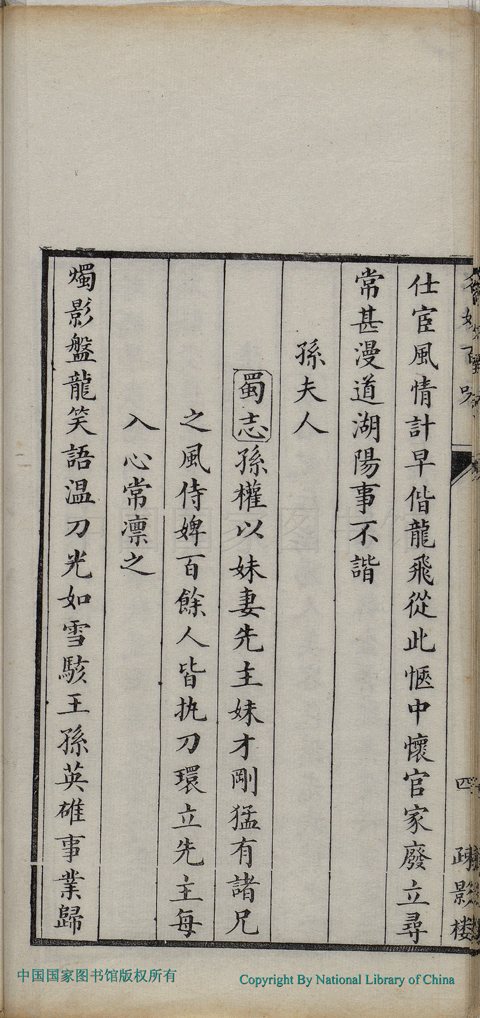 仕宦風情計早偕龍飛從此愜中懷官家廢立尋
常甚漫道湖陽事不諧
孫夫人
蜀志孫權以妹妻先主妹才剛猛有諸兄
之風侍婢百餘人皆执刀環立先主每
入心常凛之
燭影盤龍笑語溫刀光如雪駭王孫英雄事業歸
四
疎影楼
中国国家图书馆版权所有
Copyright By National Library of China